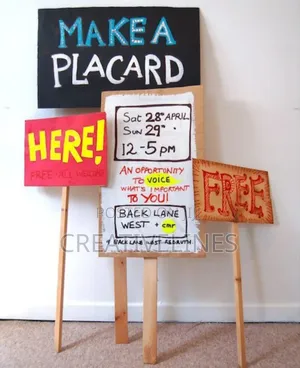 MAKE A
PLACARD
HERE!
FREE ALL WELCOME
Sat 28th APRIL
Sun 29th
12-5pm
AN OPPORTUNITY
TO VOICE
WHAT'S IMPORTANT
TO YOU!
BACK LANE
WEST + CMR
BACK LANE WEST REDRUTH
FREE
CREATIVELINES